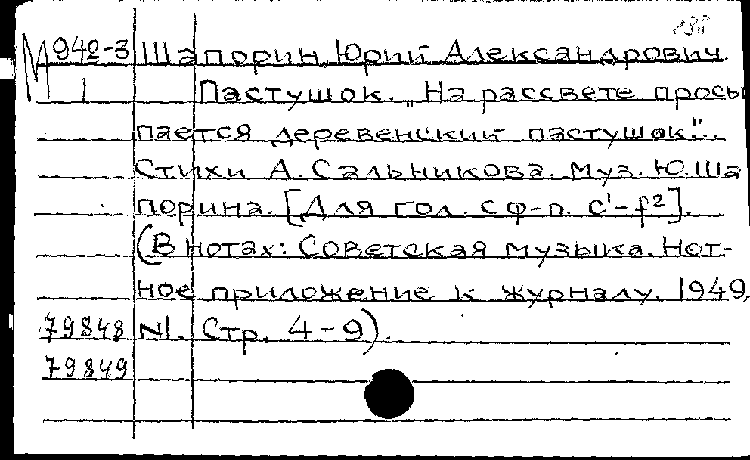 М 942-3 Шапорин Юрий Александрович
1 Пастушок. „На рассвете просы
пается деревенский пастушок".
Стихи А. Сальникова. Муз. Ю. Ша
порина. [Для гол. с ф-п. c¹-f²].
(В нотах: Советская музыка. Нот-
ное приложение к журналу. 1949,
79848 №1. Стр. 4-9).
79849